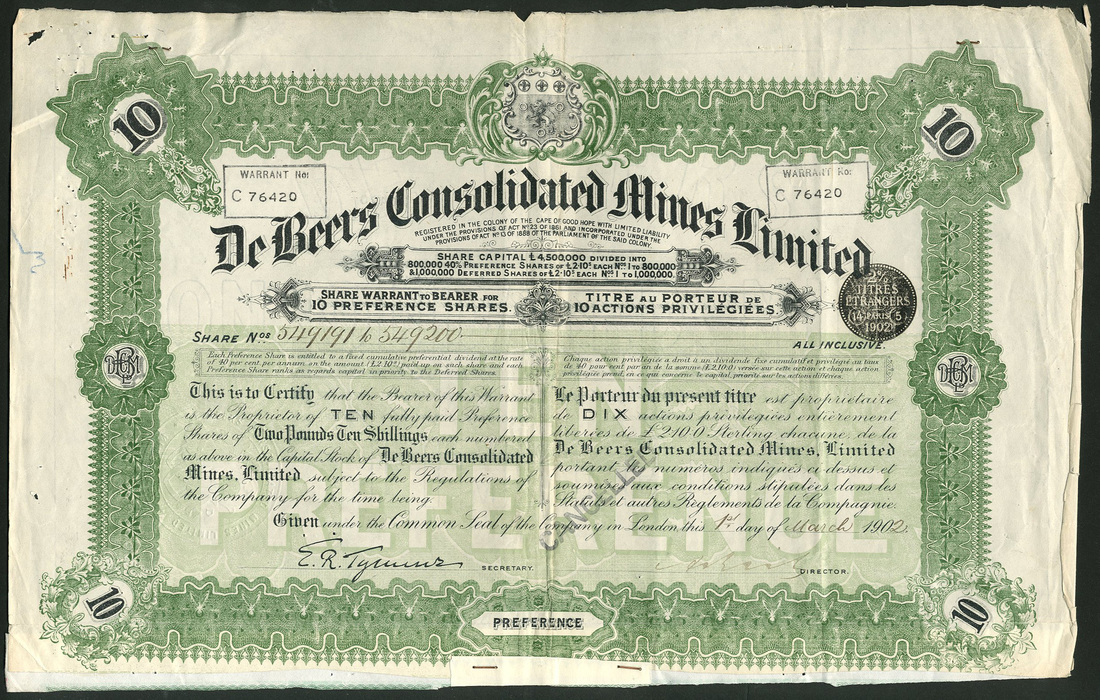 10
10
WARRANT No:
C 76420
WARRANT No:
C 76420
De Beers Consolidated Mines Limited
REGISTERED IN THE COLONY OF THE CAPE OF GOOD HOPE WITH LIMITED LIABILITY
UNDER THE PROVISIONS OF ACT No 23 OF 1861 AND INCORPORATED UNDER THE
PROVISIONS OF ACT No 13 OF 1888 OF THE PARLIAMENT OF THE SAID COLONY.
SHARE CAPITAL £4,500,000 DIVIDED INTO
800,000 40% PREFERENCE SHARES OF £2·10s EACH Nos 1 TO 800,000
& 1,000,000 DEFERRED SHARES OF £2·10s EACH Nos 1 TO 1,000,000.
SHARE WARRANT TO BEARER FOR
10 PREFERENCE SHARES.
TITRE AU PORTEUR DE
10 ACTIONS PRIVILÉGIÉES.
TITRES
ETRANGERS
(14) PARIS 5
1902
SHARE Nos 549191 to 549200
ALL INCLUSIVE.
Each Preference Share is entitled to a fixed cumulative preferential dividend at the rate
of 40 per cent per annum on the amount (£2.10s) paid up on such share and each
Preference Share ranks as regards capital in priority to the Deferred Shares.
Chaque action privilégiée a droit à un dividende fixe cumulatif et privilégié au taux
de 40 pour cent par an de la somme (£2.10.0) versée sur cette action et chaque action
privilégiée prend, en ce que concerne le capital, priorité sur les actions différées.
This is to Certify that the Bearer of this Warrant
is the Proprietor of TEN fully paid Preference
Shares of Two Pounds Ten Shillings each numbered
as above in the Capital Stock of De Beers Consolidated
Mines, Limited subject to the Regulations of
the Company for the time being.
Le Porteur du présent titre est propriétaire
de DIX actions privilégiées entièrement
libérées de £2.10.0 Sterling chacune, de la
De Beers Consolidated Mines, Limited
portant les numéros indiqués ci-dessus et
soumises aux conditions stipulées dans les
Statuts et autres Règlements de la Compagnie.
CANCELLED
Given under the Common Seal of the Company in London this 1st day of March 1902.
SECRETARY.
DIRECTOR.
PREFERENCE
10
PREFERENCE
10